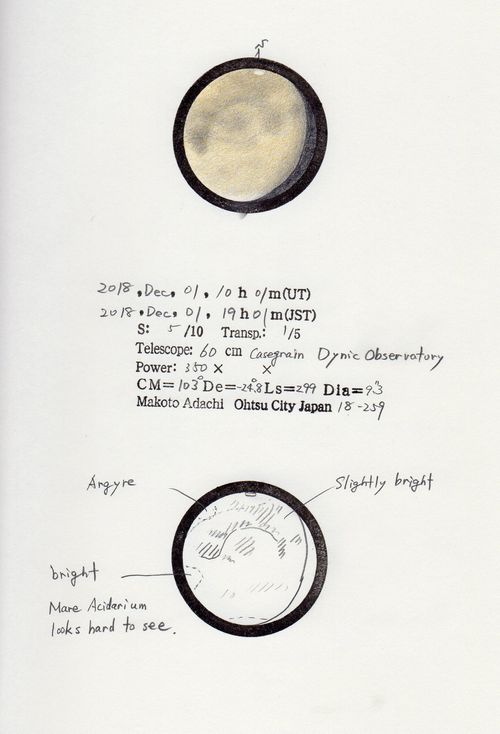 S
2018, Dec, 01, 10 h 01m(UT)
2018, Dec, 01, 19 h 01m(JST)
S: 5 /10 Transp.: 1/5
Telescope: 60 cm Casegrain Dynic Observatory
Power: 350 × ×
CM= 103° De= -24.8° Ls= 299 Dia= 9".3
Makoto Adachi Ohtsu City Japan 18-259
Argyre
Slightly bright
bright
Mare Acidarium
looks hard to see.